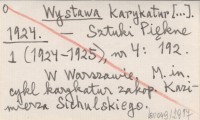 Wystawa Karykatur [...].
1924. — Sztuki Piękne
1 (1924-1925), nr 4: 192.
W Warszawie, M. in.
cykl karykatur zakop. Kazi-
mierza Sichulskiego.